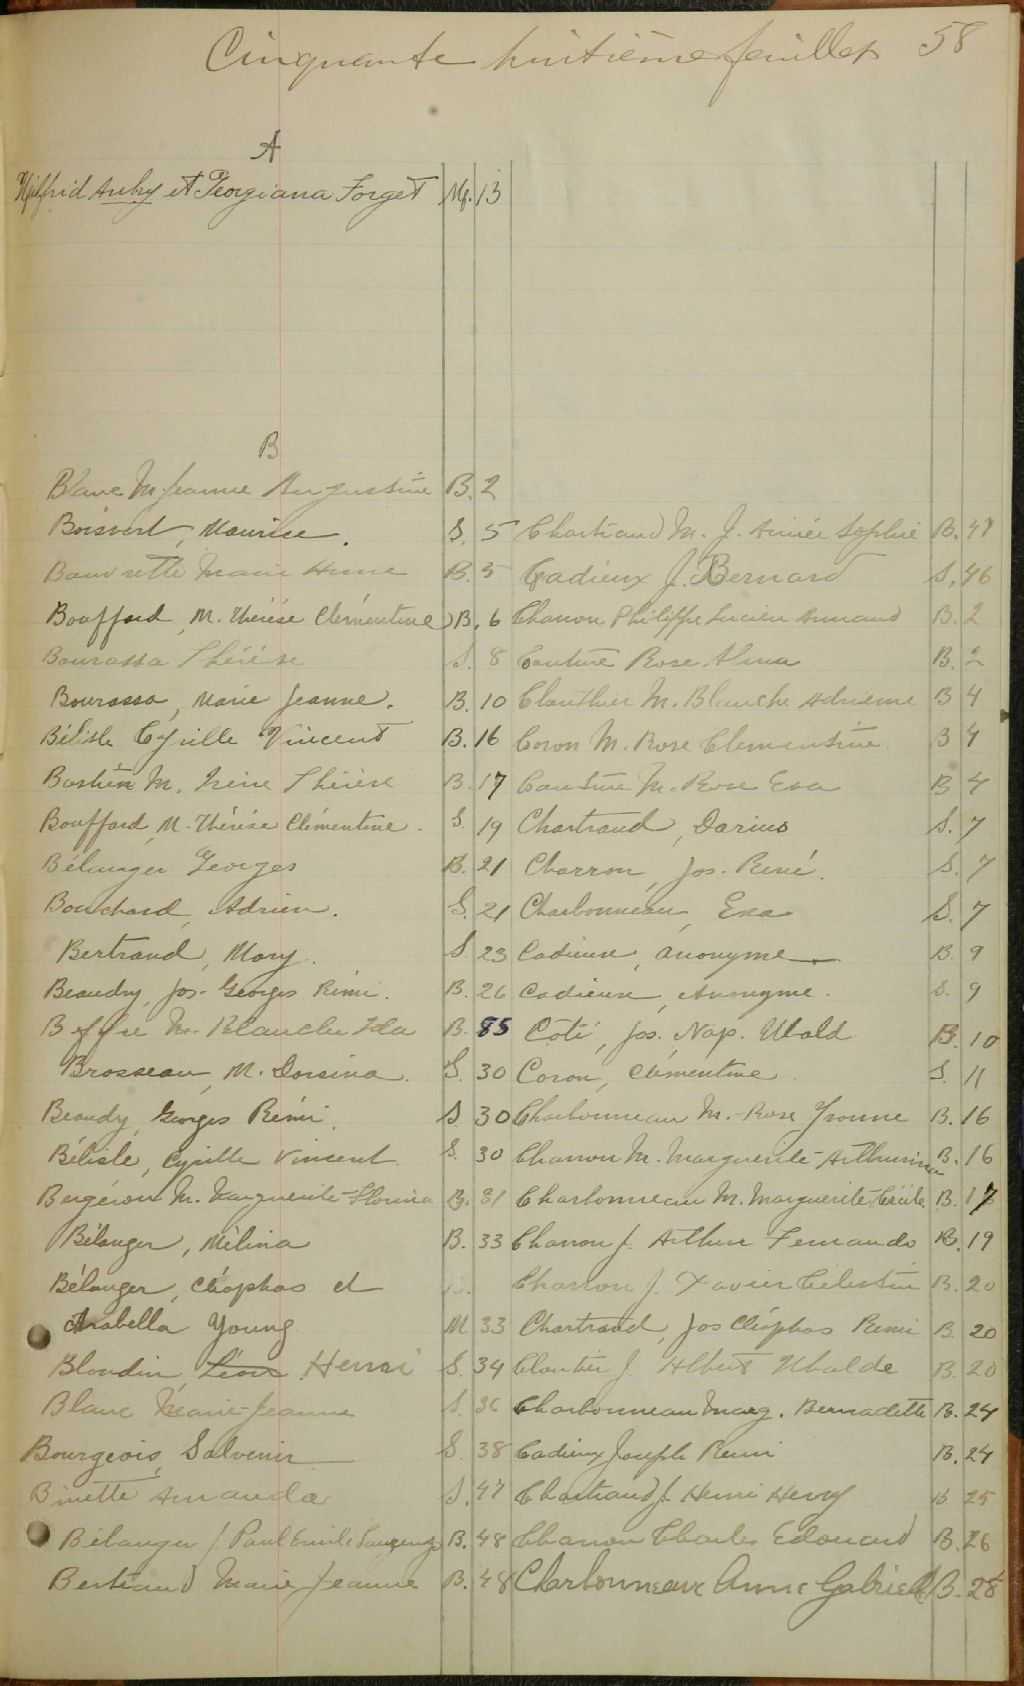 Cinquante huitième feuillet 58
A
Wilfrid Aubry et Georgiana Forget M. 13
B
Blanc M. Jeanne Augustine B. 2
Boisvert, Maurice. S. 5
Marie Anne B. 5
Bouffard, M. Thérèse Clémentine B. 6
Bourassa Thérèse S. 8
Bourassa, Marie Jeanne. B. 10
Bélisle Cyrille Vincent B. 16
Bastien M. Irène Thérèse B. 17
Bouffard, M. Thérèse Clémentine. S. 19
Bélanger Georges B. 21
Bouchard, Adrien. S. 21
Bertrand, Mary. S. 23
Beaudry, Jos. Georges Rémi. B. 26
M. Blanche Ida B. 85
Brosseau, M. Dorsina. S. 30
Beaudy, Georges Rémi. S. 30
Bélisle, Cyrille Vincent. S. 30
Bergéron M. Marguerite-Florina B. 31
Bélanger, Mélina B. 33
Bélanger, Cléophas et
Arabella Young M. 33
Blondin, Léon Henri S. 34
Blanc Marie-Jeanne S. 36
Bourgeois, Salvenir S. 38
Binette Amanda S. 47
Bélanger J. Paul Emile B. 48
Bertrand Marie Jeanne B. 48
Chartrand M. J. Aimée Sophie B. 47
Cadieux J. Bernard S. 46
Charron Philippe Lucien Armand B. 2
Couture Rose Alma B. 2
Clouthier M. Blanche Adrienne B 4
Coron M. Rose Clementine B 4
Couture M. Rose Eva B 4
Chartrand, Darius S. 7
Charron, Jos. René. S. 7
Charbonneau, Eva S. 7
Cadieux, anonyme B. 9
Cadieux, Anonyme. S. 9
Côté, Jos. Nap. Ubald B. 10
Coron, Clémentine S. 11
Charbonneau M.-Rose Yvonne B. 16
Charron M. Marguerite-Arthurina B. 16
Charbonneau M. Marguerite-Cécile B. 17
Charron J. Arthur Fernando B. 19
Charron J. Xavier Célestin B. 20
Chartrand, Jos Cléophas Remi B. 20
Cloutier J. Albert Ubalde B. 20
Charbonneau Marg. Bernadette B. 24
Cadieux Joseph Remi B. 24
Chartrand J. Henri Hervy B. 25
Charron Charles Edouard B. 26
Charbonneau Anne Gabriell B. 28